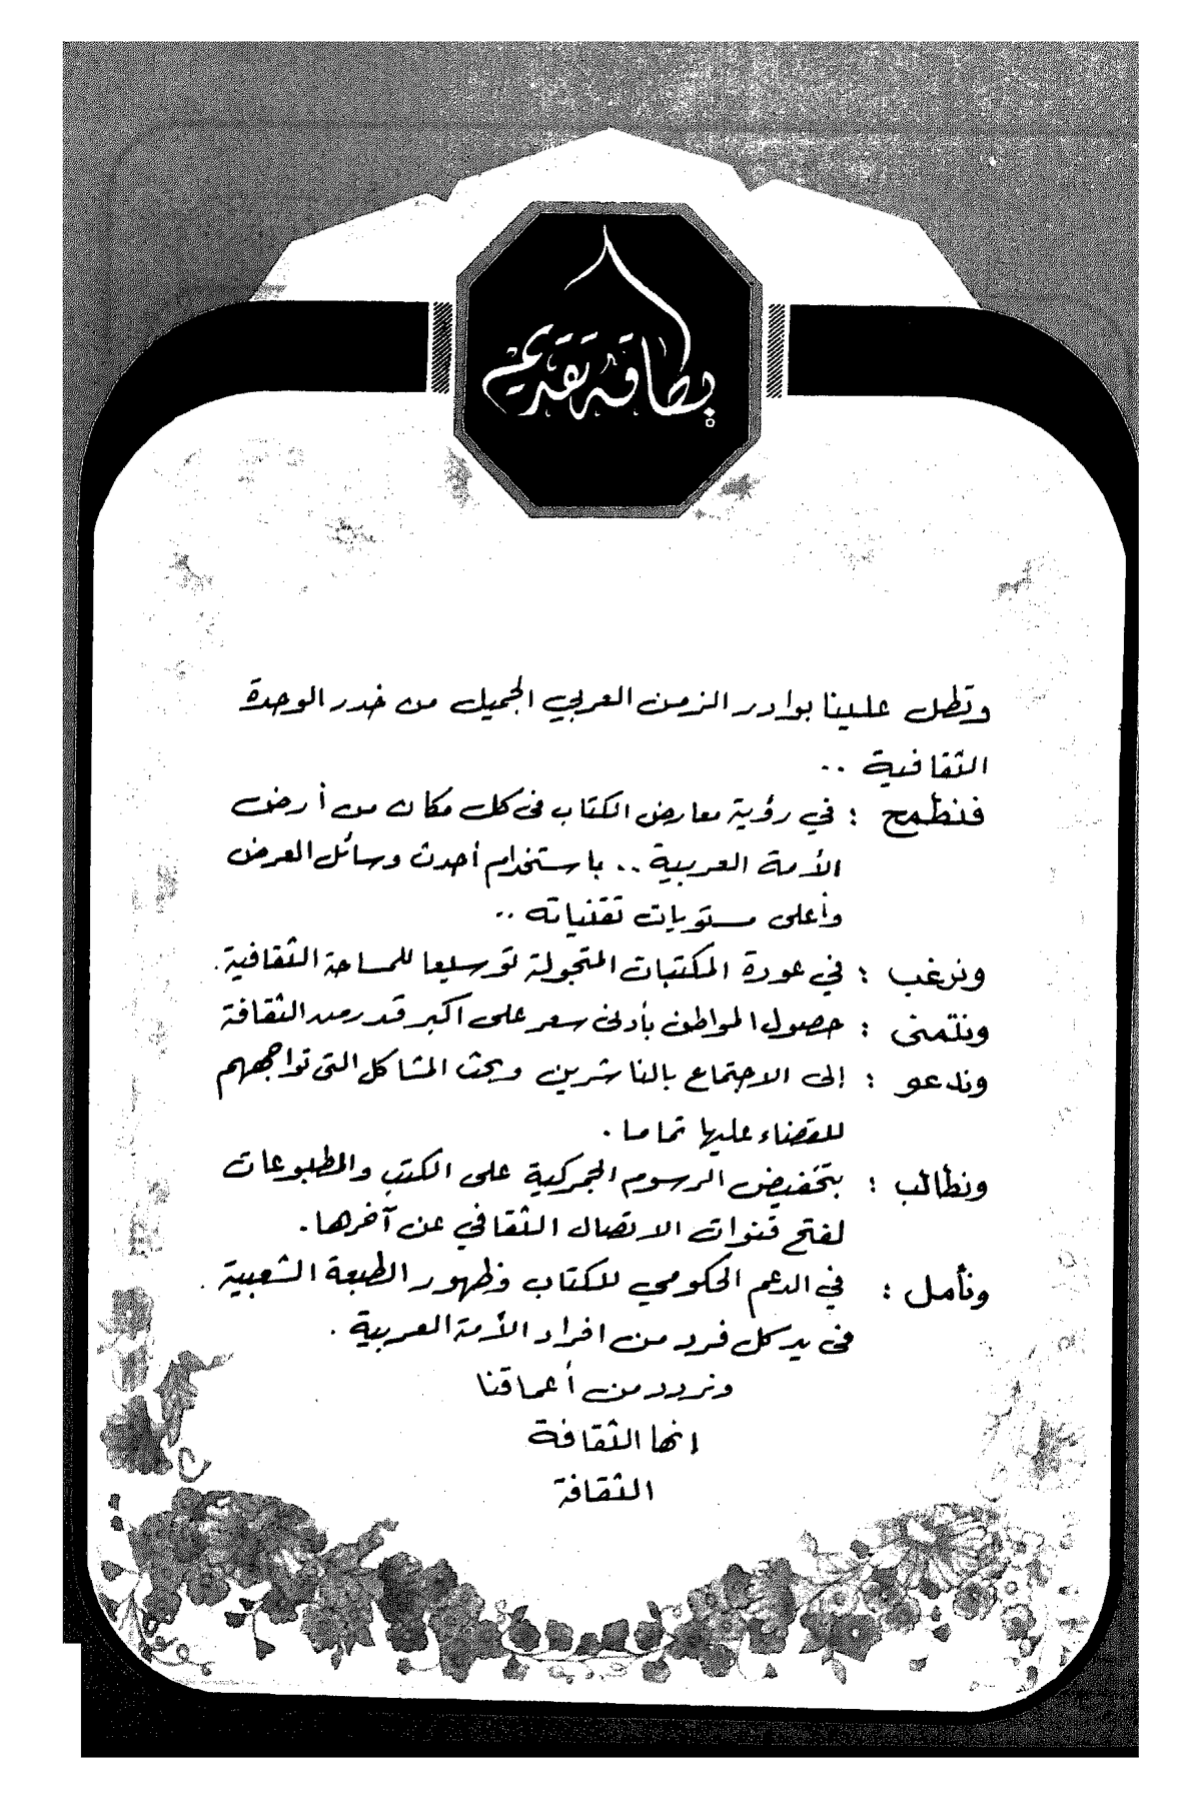 بطاقة تقديم
وتطل علينا بوادر الزمن العربي الجميل من خدر الوحدة
الثقافية ..
فنطمح : في رؤية معارض الكتاب فى كل مكان من أرض
الأمة العربية .. باستخدام أحدث وسائل العرض
وأعلى مستويات تقنياته ..
ونرغب : في عودة المكتبات المتجولة توسيعا للمساحة الثقافية .
ونتمنى : حصول المواطن بأدنى سعر على أكبر قدر من الثقافة
وندعو : إلى الاجتماع بالناشرين وبحث المشاكل التى تواجههم
للقضاء عليها تماما .
ونطالب : بتخفيض الرسوم الجمركية على الكتب والمطبوعات
لفتح قنوات الاتصال الثقافي عن آخرها .
ونأمل : في الدعم الحكومي للكتاب وظهور الطبعة الشعبية .
فى يد كل فرد من افراد الأمة العربية .
ونردد من أعماقنا
انها الثقافة
الثقافة